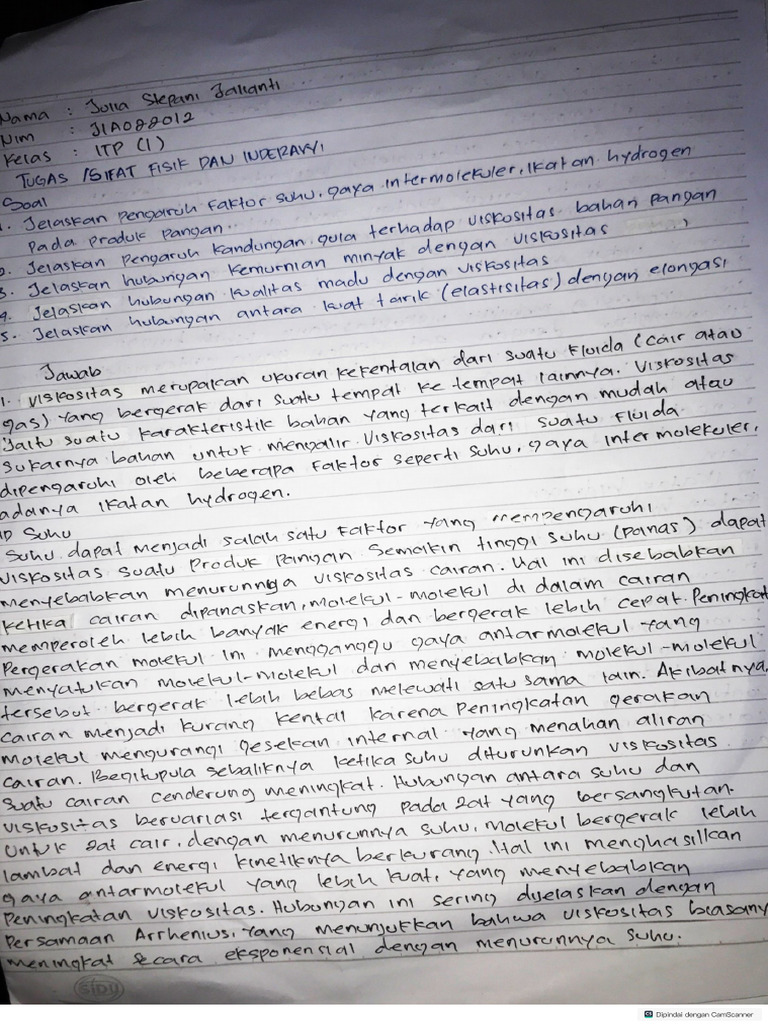 Nama : Julia Stepani Jalianti
Nim : J1A022012
Kelas : ITP (1)
TUGAS SIFAT FISIK DAN INDERAWI
Soal
1. Jelaskan pengaruh faktor suhu, gaya intermolekuler, Ikatan hydrogen
pada produk pangan.
2. Jelaskan pengaruh kandungan gula terhadap viskositas bahan pangan
3. Jelaskan hubungan kemurnian minyak dengan viskositas
4. Jelaskan hubungan kualitas madu dengan viskositas
5. Jelaskan hubungan antara kuat tarik (elastisitas) dengan elongasi
Jawab
1. Viskositas merupakan ukuran kekentalan dari suatu fluida (cair atau
gas) yang bergerak dari suatu tempat ke tempat lainnya. Viskositas
Yaitu suatu karakteristik bahan yang terkait dengan mudah atau
sukarnya bahan untuk mengalir. Viskositas dari suatu fluida
dipengaruhi oleh beberapa faktor seperti suhu, gaya intermolekuler,
adanya ikatan hydrogen.
Suhu
Suhu dapat menjadi salah satu faktor yang mempengaruhi
viskositas suatu produk pangan semakin tinggi suhu (panas) dapat
menyebabkan menurunnya viskositas cairan. Hal ini disebabkan
ketika cairan dipanaskan, molekul-molekul di dalam cairan
memperoleh lebih banyak energi dan bergerak lebih cepat. Peningkat
Pergerakan molekul ini mengganggu gaya antarmolekul yang
menyatukan molekul-molekul dan menyebabkan molekul-molekul
tersebut bergerak lebih bebas melewati satu sama lain. Akibatnya,
cairan menjadi kurang kental karena peningkatan gerakan
molekul mengurangi gesekan internal yang menahan aliran
cairan. Begitupula sebaliknya ketika suhu diturunkan viskositas
suatu cairan cenderung meningkat. Hubungan antara suhu dan
viskositas bervariasi tergantung pada zat yang bersangkutan.
Untuk zat cair, dengan menurunnya suhu, molekul bergerak lebih
lambat dan energi kinetiknya berkurang. Hal ini menghasilkan
gaya antarmolekul yang lebih kuat, yang menyebabkan
Peningkatan viskositas. Hubungan ini sering dijelaskan dengan
Persamaan Arrhenius, yang menunjukkan bahwa viskositas biasany
meningkat secara eksponensial dengan menurunnya suhu.
SIDU
Dipindai dengan CamScanner